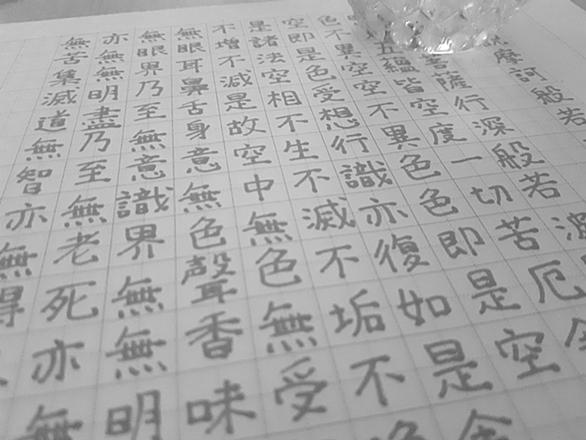 摩訶般若
菩薩行深般若波
五蘊皆空度一切苦厄
色不異空空不異色色即是空
空即是色受想行識亦復如是
是諸法空相不生不滅不垢不
不增不減是故空中無色無受
無眼耳鼻舌身意無色聲香味
無眼界乃至無意識界無無明
亦無無明盡乃至無老死亦無
無苦集滅道無智亦無得